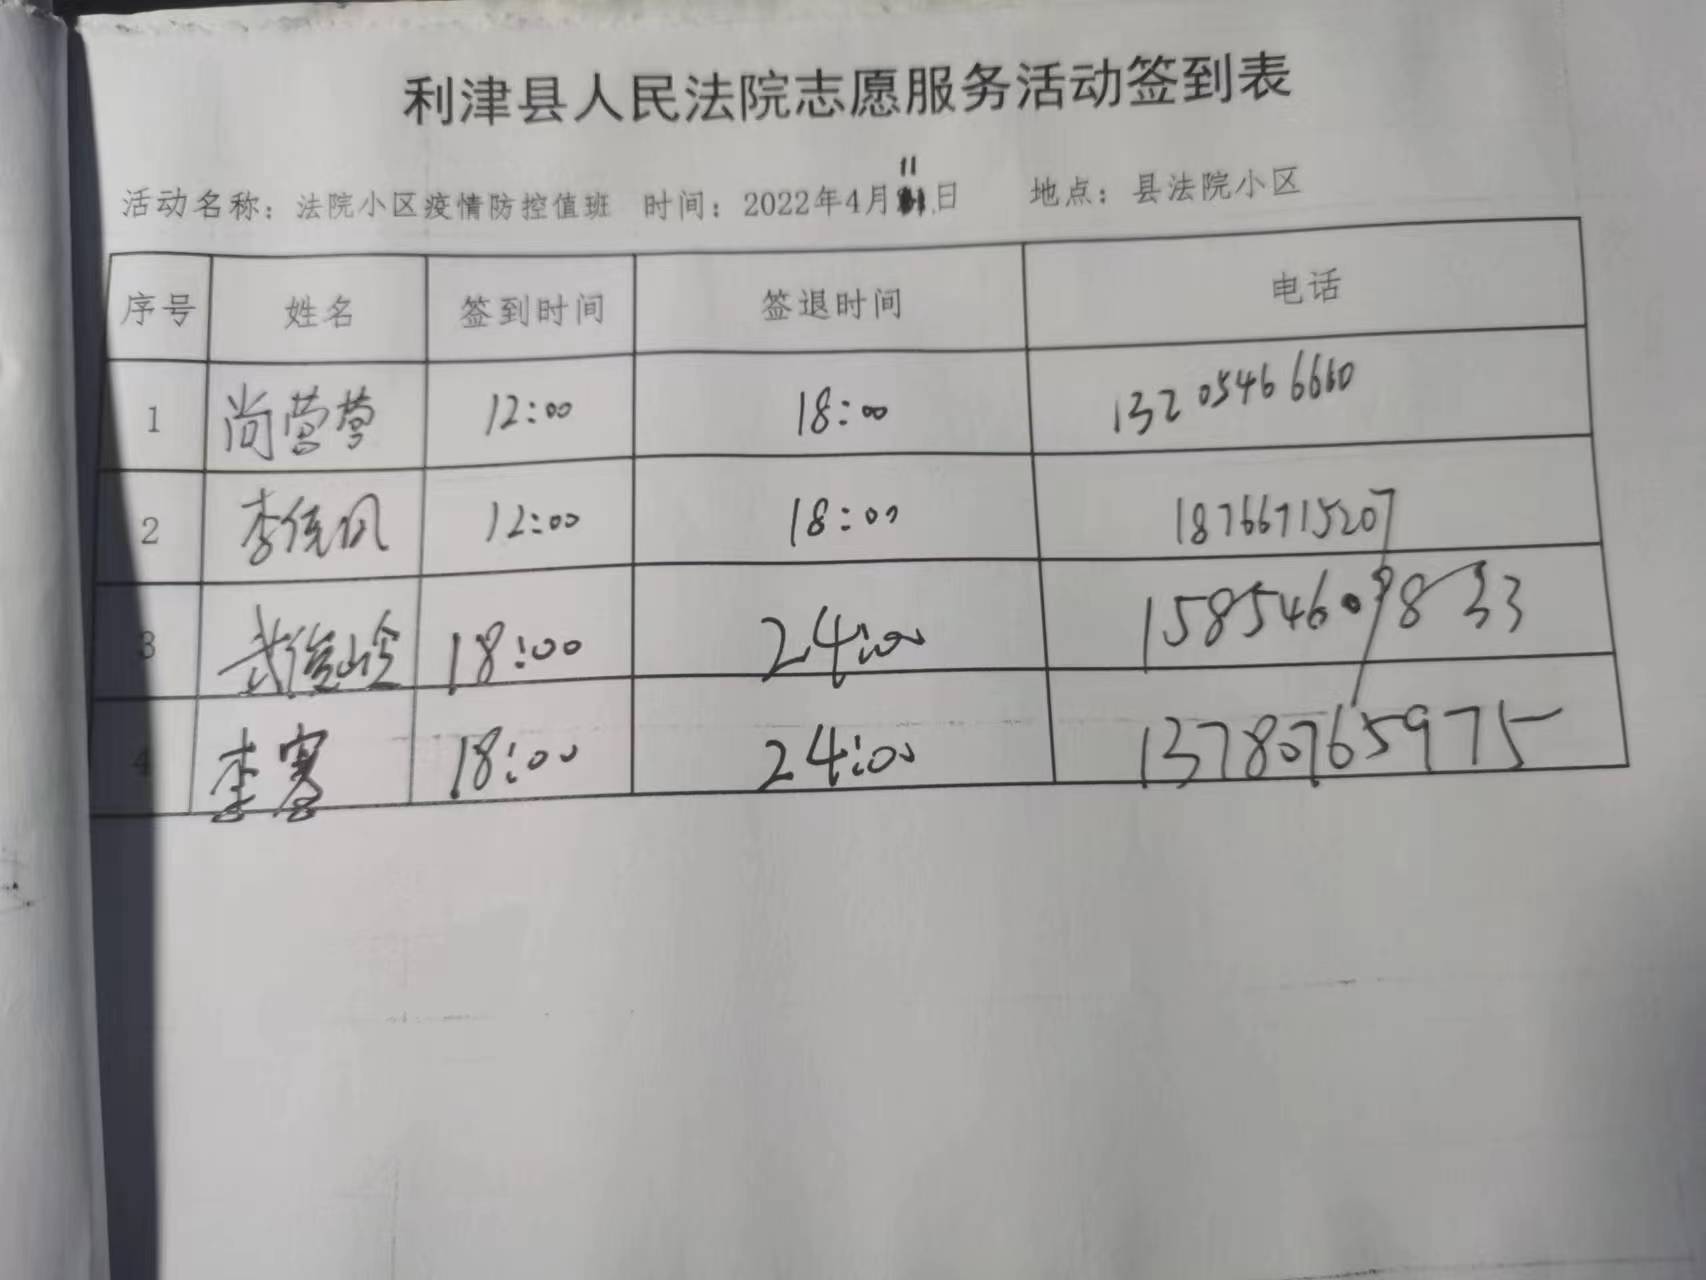 利津县人民法院志愿服务活动签到表
活动名称：法院小区疫情防控值班 时间：2022年4月11日 地点：县法院小区
序号 姓名 签到时间 签退时间 电话
1 尚营营 12:00 18:00 13205466660
2 12:00 18:00 18766715207
3 武俊岭 18:00 24:00 15854609833
4 李寒 18:00 24:00 13780765975